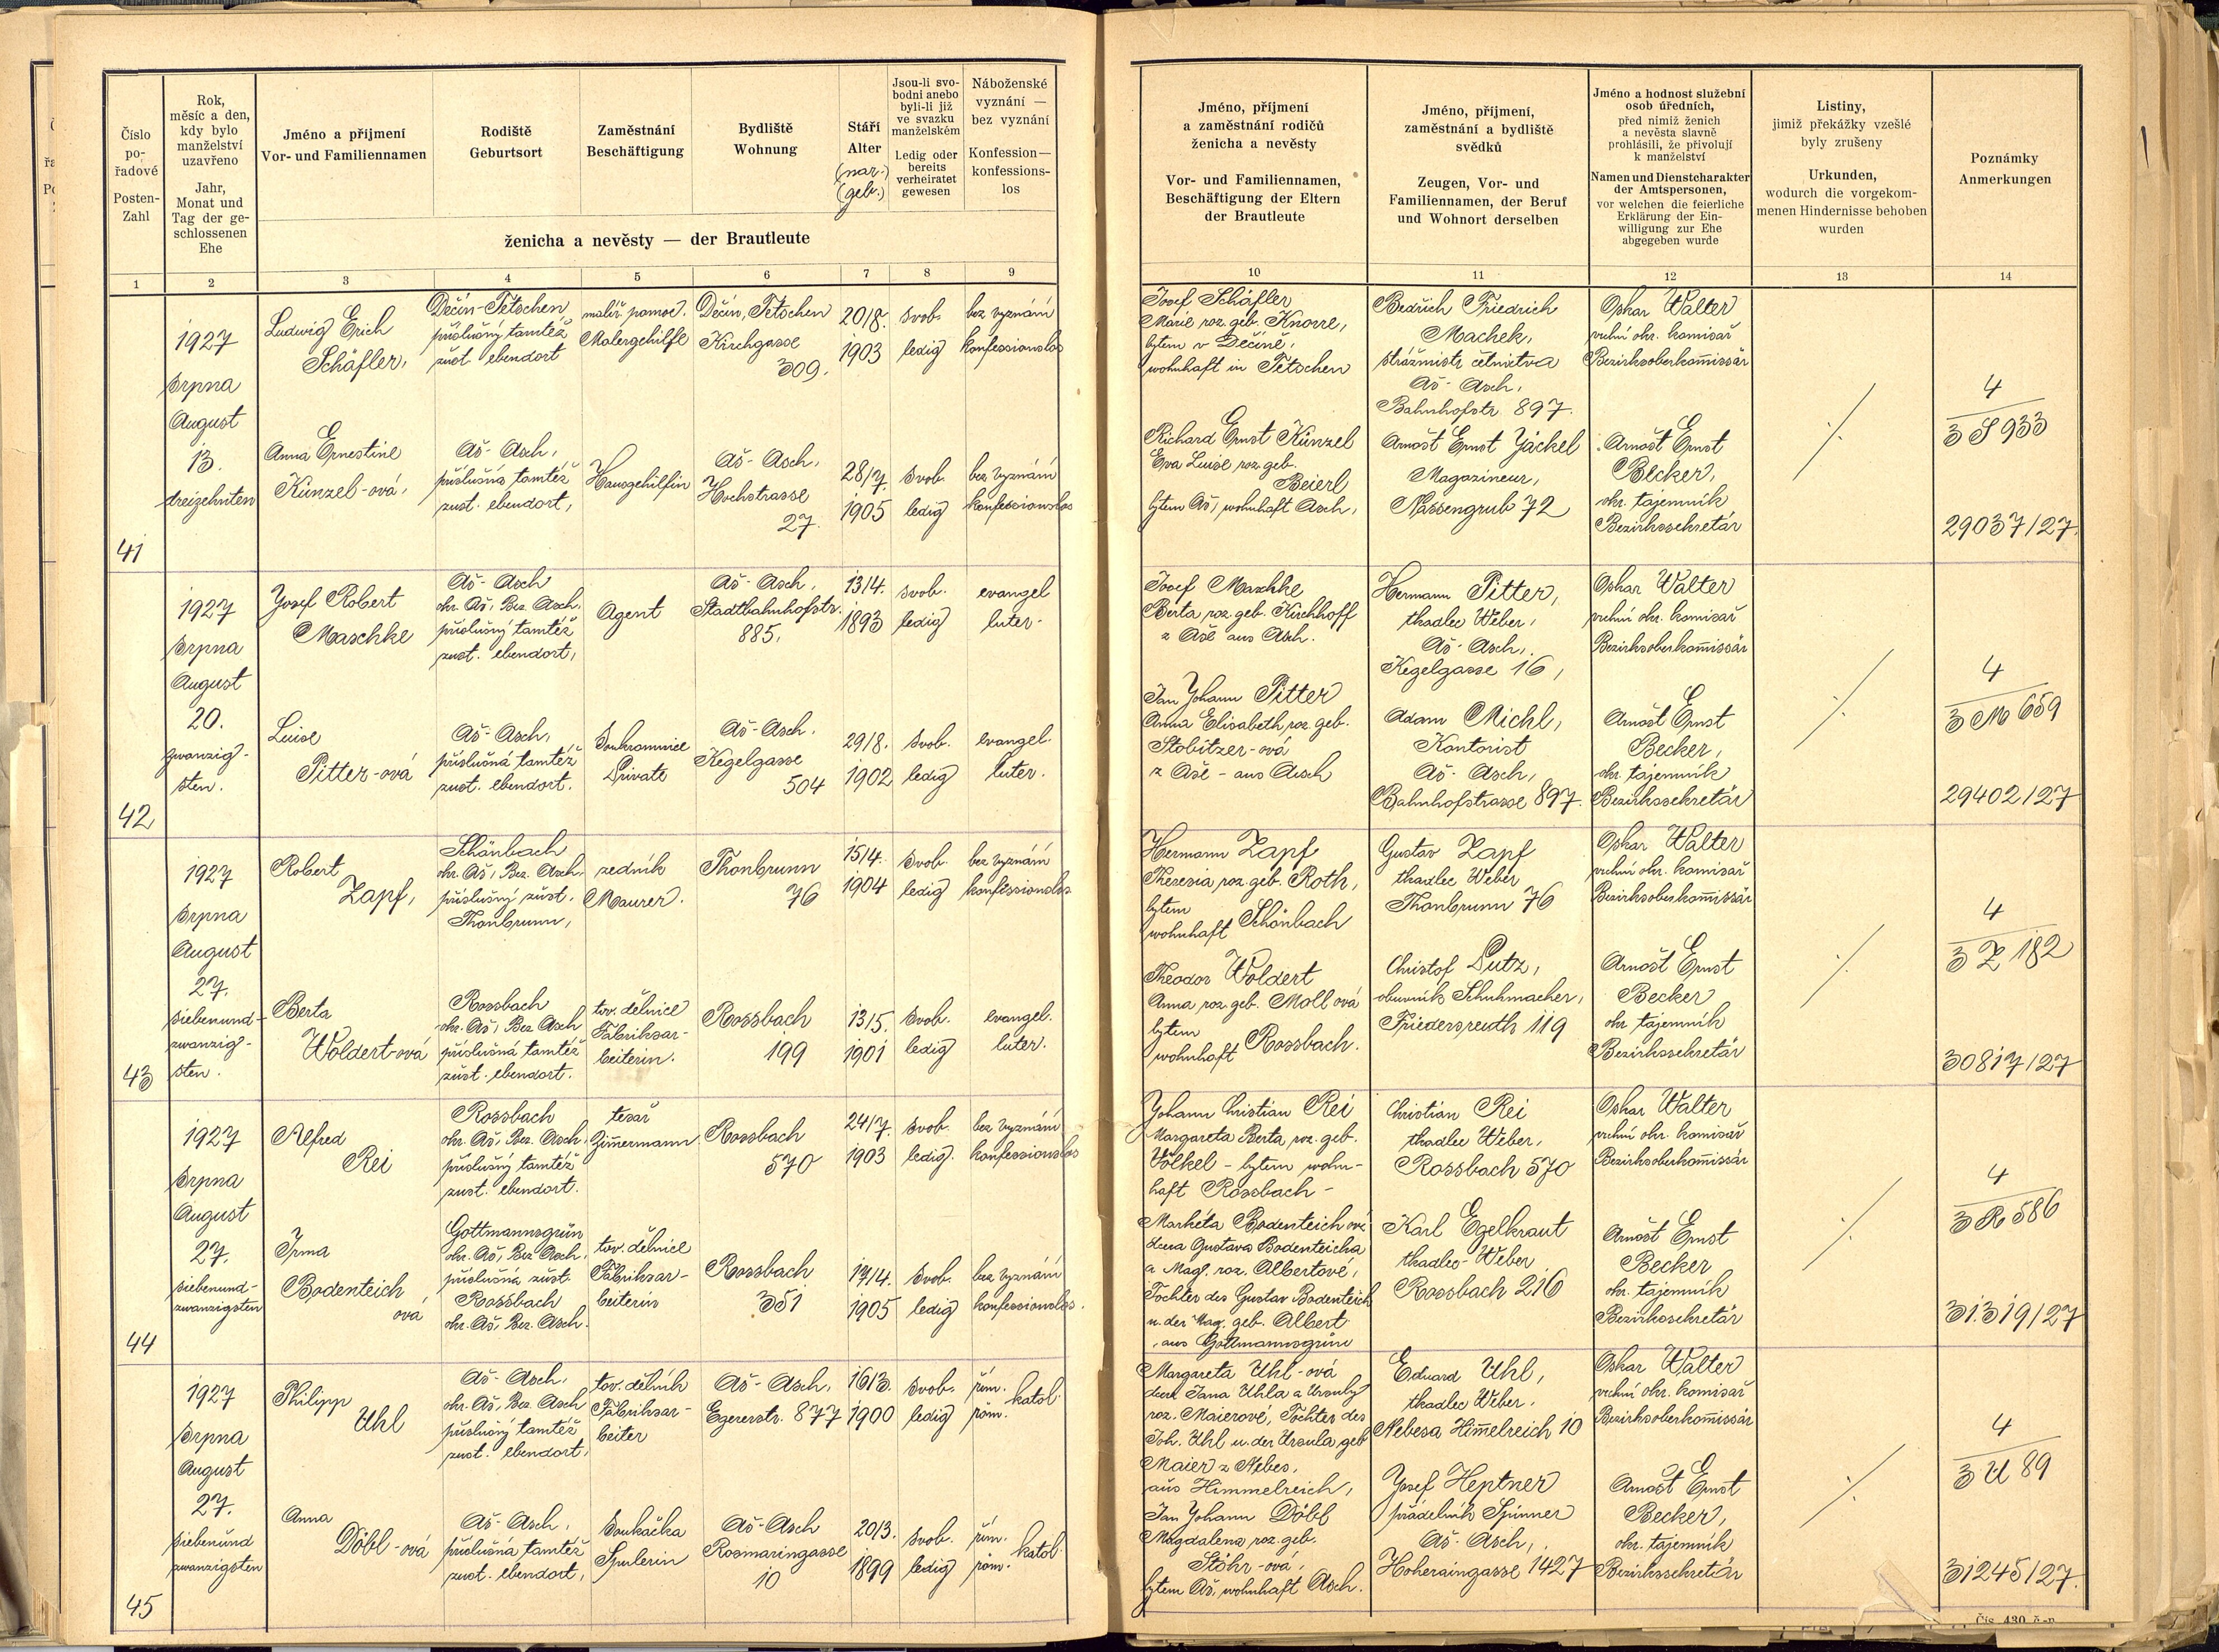 Číslo
po-
řadové
Posten-
Zahl
Rok,
měsíc a den,
kdy bylo
manželství
uzavřeno
Jahr,
Monat und
Tag der ge-
schlossenen
Ehe
Jméno a příjmení
Vor- und Familiennamen
Rodiště
Geburtsort
Zaměstnání
Beschäftigung
Bydliště
Wohnung
Stáří
Alter
(nar.)
(geb.)
Jsou-li svo-
bodni anebo
byli-li již
ve svazku
manželském
Ledig oder
bereits
verheiratet
gewesen
Náboženské
vyznání —
bez vyznání
Konfession—
konfessions-
los
ženicha a nevěsty — der Brautleute
1 2 3 4 5 6 7 8 9
Jméno, příjmení
a zaměstnání rodičů
ženicha a nevěsty
Vor- und Familiennamen,
Beschäftigung der Eltern
der Brautleute
Jméno, příjmení,
zaměstnání a bydliště
svědků
Zeugen, Vor- und
Familiennamen, der Beruf
und Wohnort derselben
Jméno a hodnost služební
osob úředních,
před nimiž ženich
a nevěsta slavně
prohlásili, že přivolují
k manželství
Namen und Dienstcharakter
der Amtspersonen,
vor welchen die feierliche
Erklärung der Ein-
willigung zur Ehe
abgegeben wurde
Listiny,
jimiž překážky vzešlé
byly zrušeny
Urkunden,
wodurch die vorgekom-
menen Hindernisse behoben
wurden
Poznámky
Anmerkungen
10 11 12 13 14
41
1927
srpna
August
13.
dreizehnten
Ludwig Erich
Schäfler,
Děčín-Tetschen
příslušný tamtéž
zust. ebendort
malíř. pomoc.
Malergehilfe
Děčín, Tetschen
Kirchgasse
309.
20/8.
1903
svob.
ledig
bez vyznání
konfessionslos
Anna Ernestine
Künzel-ová,
Aš-Asch,
příslušná tamtéž
zust. ebendort,
Hausgehilfin
Aš-Asch,
Hochstrasse
27.
28/7.
1905
svob.
ledig
bez vyznání
konfessionslos
Josef Schäfler
Marie roz. geb. Knorre,
bytem v Děčíně,
wohnhaft in Tetschen
Richard Ernst Künzel
Eva Luise roz. geb.
Beierl
bytem Aš, wohnhaft Asch,
Bedřich Friedrich
Machek,
strážmistr četnictva
Aš-Asch,
Bahnhofstr. 897.
Arnošt Ernst Jäckel
Magazineur,
Nassengrub 72
Oskar Walter
vrchní okr. komisař
Bezirksoberkommissär
Arnošt Ernst
Becker,
okr. tajemník
Bezirkssekretär
4
3 S 933
29037/27.
42
1927
srpna
August
20.
zwanzig-
sten.
Josef Robert
Maschke
Aš-Asch
okr. Aš, Bez. Asch,
příslušný tamtéž
zust. ebendort,
Agent
Aš-Asch,
Stadtbahnhofstr.
885,
13/4.
1893
svob.
ledig
evangel
luter.
Luise
Pitter-ová
Aš-Asch,
příslušná tamtéž
zust. ebendort.
Soukromnice
Private
Aš-Asch,
Kegelgasse
504
29/8.
1902
svob.
ledig
evangel.
luter.
Josef Maschke
Berta roz. geb. Kirchhoff
z Aše aus Asch.
Jan Johann Pitter
Anna Elisabeth roz. geb.
Stobitzer-ová
z Aše - aus Asch
Hermann Pitter,
tkadlec Weber,
Aš-Asch,
Kegelgasse 16,
Adam Michl,
Kontorist
Aš-Asch,
Bahnhofstrasse 897.
Oskar Walter
vrchní okr. komisař
Bezirksoberkommissär
Arnošt Ernst
Becker,
okr. tajemník
Bezirkssekretär
4
3 M 659
29402/27
43
1927
srpna
August
27.
siebenund-
zwanzig-
sten.
Robert
Zapf,
Schönbach
okr. Aš, Bez. Asch,
příslušný zust.
Thonbrunn,
zedník
Maurer.
Thonbrunn
76
15/4.
1904
svob.
ledig
bez vyznání
konfessionslos
Berta
Woldert-ová
Rossbach
okr. Aš, Bez Asch
příslušná tamtéž
zust. ebendort.
tov. dělnice
Fabriksar-
beiterin.
Rossbach
199
13/5.
1901
svob.
ledig
evangel.
luter.
Hermann Zapf
Theresia roz. geb. Roth,
bytem
wohnhaft Schönbach
Theodor Woldert
Anna roz. geb. Moll ová
bytem
wohnhaft Rossbach.
Gustav Zapf
tkadlec Weber
Thonbrunn 76
Christof Lutz,
obuvník Schuhmacher,
Friedersreuth 119
Oskar Walter
vrchní okr. komisař
Bezirksoberkommissär
Arnošt Ernst
Becker
okr. tajemník
Bezirkssekretär
4
3 Z 182
30817/27
44
1927
srpna
August
27.
siebenund-
zwanzigsten
Alfred
Rei
Rossbach
okr. Aš, Bez. Asch,
příslušný tamtéž
zust. ebendort.
tesař
Zimmermann
Rossbach
570
24/7.
1903
svob.
ledig.
bez vyznání
konfessionslos
Irma
Bodenteich
ová
Gottmannsgrün
okr. Aš, Bez. Asch,
příslušná zust.
Rossbach
okr. Aš, Bez. Asch.
tov. dělnice
Fabriksar-
beiterin
Rossbach
351
17/4.
1905
svob.
ledig
bez vyznání
konfessionslos.
Johann Christian Rei
Margareta Berta roz. geb.
Völkel - bytem wohn-
haft Rossbach -
Markéta Bodenteich ová
dcera Gustava Bodenteicha
a Mag. roz. Albertové,
Tochter des Gustav Bodenteich
u. der Mag. geb. Albert
aus Gottmannsgrün
Christian Rei
tkadlec Weber,
Rossbach 570
Karl Egelkraut
tkadlec-Weber
Rossbach 216
Oskar Walter
vrchní okr. komisař
Bezirksoberkommissär
Arnošt Ernst
Becker
okr. tajemník
Bezirkssekretär
4
3 R 586
31.319/27
45
1927
srpna
August
27.
siebenund
zwanzigsten
Philipp
Uhl
Aš-Asch,
okr. Aš, Bez. Asch
příslušný tamtéž
zust. ebendort,
tov. dělník
Fabriksar-
beiter
Aš-Asch,
Egererstr. 877
16/3.
1900
svob.
ledig
řím. katol.
röm.
Anna
Döbl-ová
Aš-Asch,
příslušná tamtéž
zust. ebendort,
Soukačka
Spulerin
Aš-Asch
Rosmaringasse
10
20/3.
1899
svob.
ledig
řím. katol.
röm.
Margareta Uhl-ová
dcera Jana Uhla a Ursuly
roz. Maierové, Tochter des
Joh. Uhl u. der Ursula geb
Maier z Nebes,
aus Himmelreich,
Jan Johann Döbl
Magdalena roz. geb.
Stöhr-ová,
bytem Aš, wohnhaft Asch.
Eduard Uhl,
tkadlec Weber,
Nebesa Himmelreich 10
Josef Heptner
přádelník Spinner
Aš-Asch,
Hoheraingasse 1427
Oskar Walter
vrchní okr. komisař
Bezirksoberkommissär
Arnošt Ernst
Becker,
okr. tajemník
Bezirkssekretär
4
3 U 89
31245/27.
Čís. 430